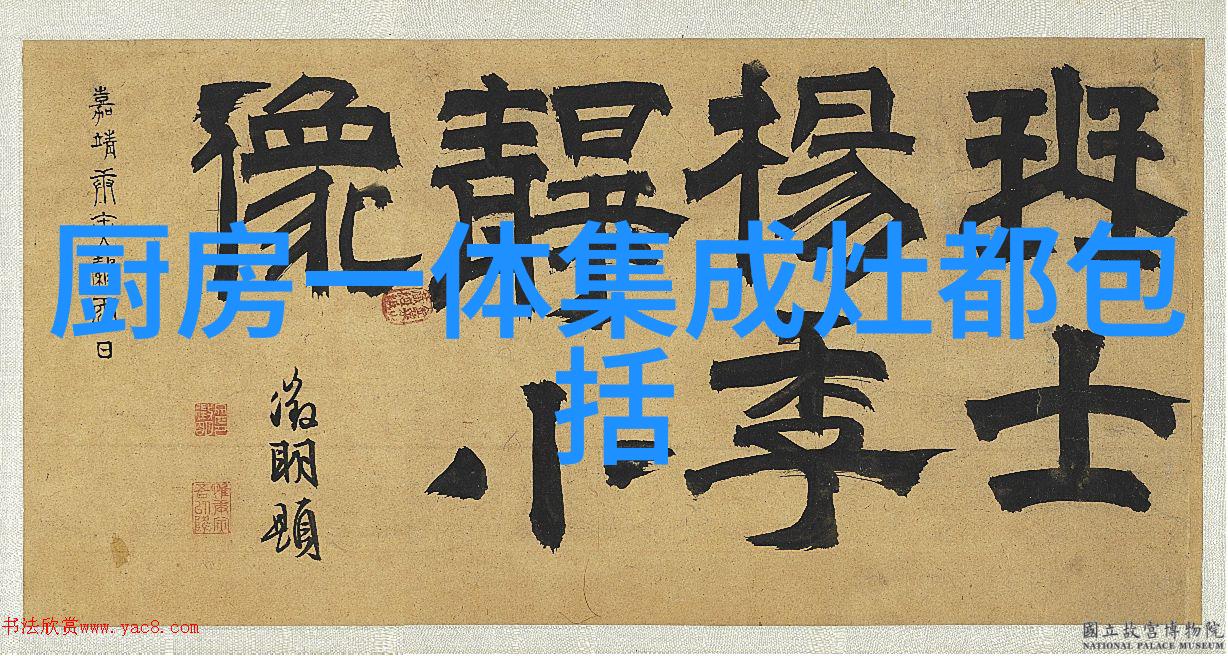 厨房一体集成灶都包
括
琴士
楊季
靜小
像
嘉靖
日
徵明題
书法欣赏www.yac8.com
國立故宮博物院
NATIONAL PALACE MUSEUM